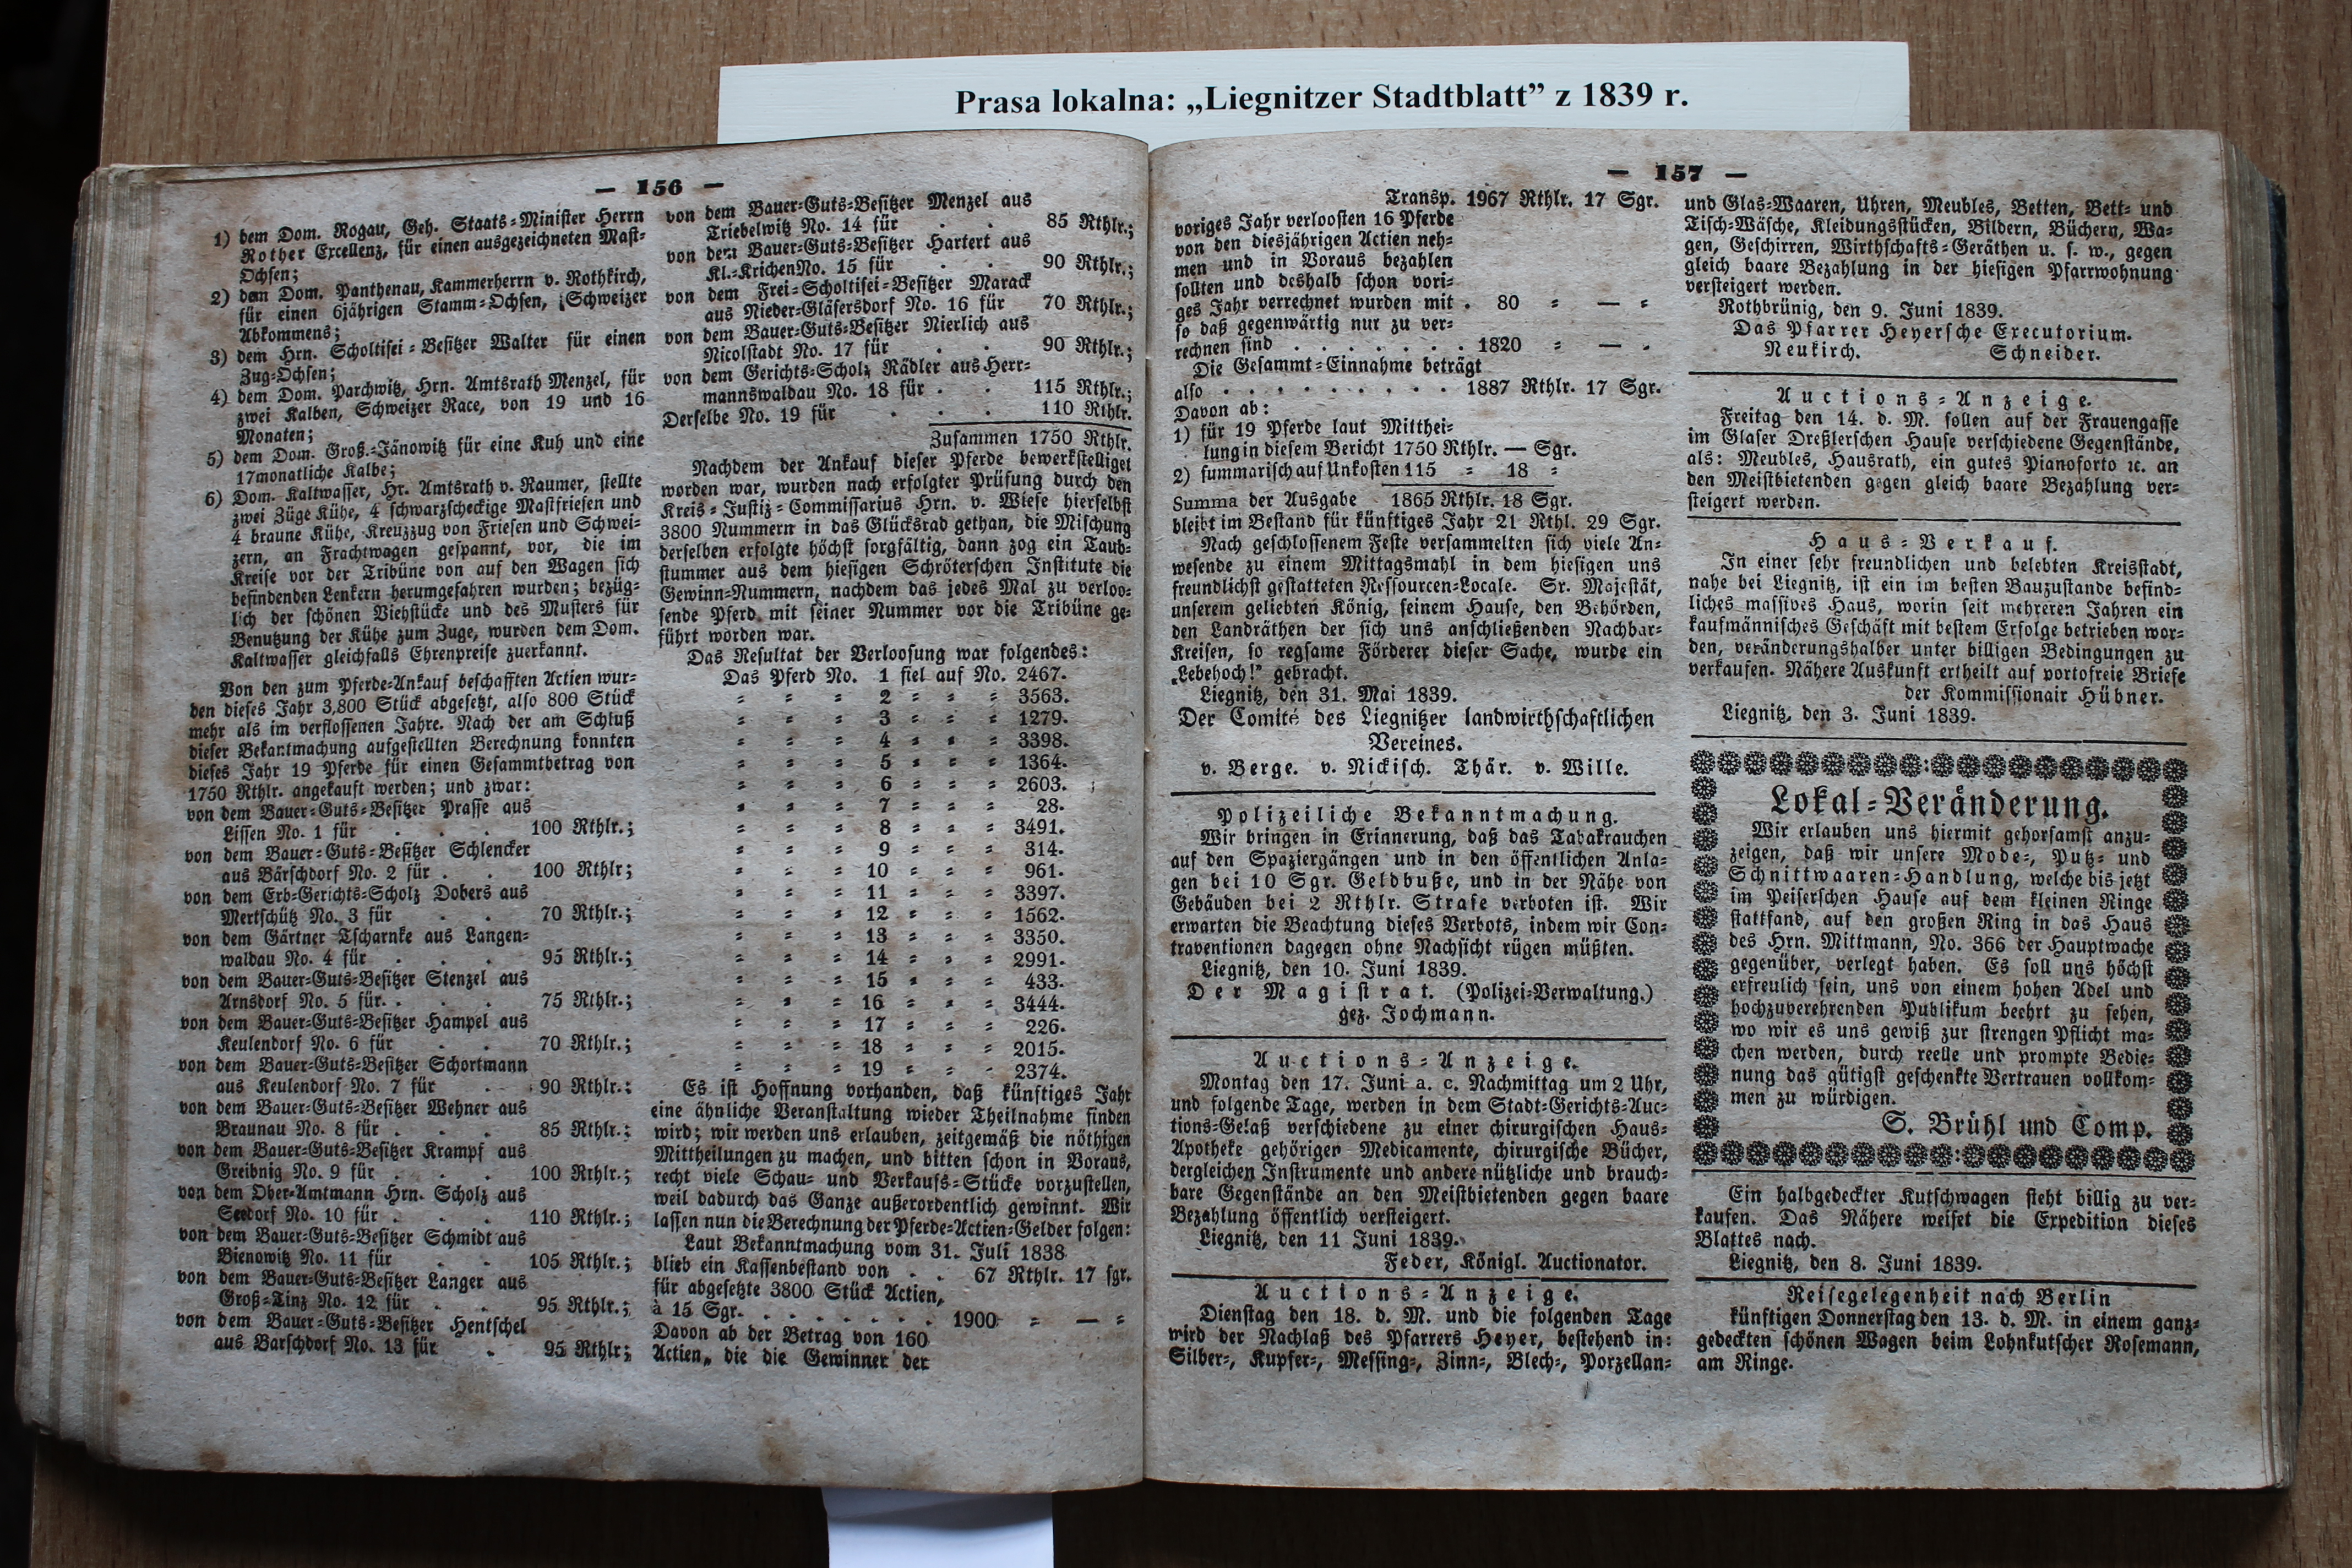 Prasa lokalna: „Liegnitzer Stadtblatt” z 1839 r.
— 156 —
1) dem Dom. Rogau, Geh. Staats-Minister Herrn
Rother Excellenz, für einen ausgezeichneten Mast-
Ochsen;
2) dem Dom. Panthenau, Kammerherrn v. Rothkirch,
für einen 6jährigen Stamm-Ochsen, Schweizer
Abkommens;
3) dem Hrn. Scholtisei-Besitzer Walter für einen
Zug-Ochsen;
4) dem Dom. Parchwitz, Hrn. Amtsrath Menzel, für
zwei Kalben, Schweizer Race, von 19 und 16
Monaten;
5) dem Dom. Groß-Jänowitz für eine Kuh und eine
17monatliche Kalbe;
6) Dom. Kaltwasser, Hr. Amtsrath v. Raumer, stellte
zwei Züge Kühe, 4 schwarzscheckige Mastfriesen und
4 braune Kühe, Kreuzzug von Friesen und Schwei-
zern, an Frachtwagen gespannt, vor, die im
Kreise vor der Tribüne von auf den Wagen sich
befindenden Lenkern herumgefahren wurden; bezüg-
lich der schönen Viehstücke und des Musters für
Benutzung der Kühe zum Zuge, wurden dem Dom.
Kaltwasser gleichfalls Ehrenpreise zuerkannt.
Von den zum Pferde-Ankauf beschafften Actien wur-
den dieses Jahr 3,800 Stück abgesetzt, also 800 Stück
mehr als im verflossenen Jahre. Nach der am Schluß
dieser Bekantmachung aufgestellten Berechnung konnten
dieses Jahr 19 Pferde für einen Gesammtbetrag von
1750 Rthlr. angekauft werden; und zwar:
von dem Bauer-Guts-Besitzer Prasse aus
Lissen No. 1 für . . . 100 Rthlr.;
von dem Bauer-Guts-Besitzer Schlencker
aus Bärschdorf No. 2 für . . 100 Rthlr;
von dem Erb-Gerichts-Scholz Dobers aus
Mertschütz No. 3 für . . 70 Rthlr.;
von dem Gärtner Tscharnke aus Langen-
waldau No. 4 für . . . 95 Rthlr.;
von dem Bauer-Guts-Besitzer Stenzel aus
Arnsdorf No. 5 für. . . . 75 Rthlr.;
von dem Bauer-Guts-Besitzer Hampel aus
Keulendorf No. 6 für . . 70 Rthlr.;
von dem Bauer-Guts-Besitzer Schortmann
aus Keulendorf No. 7 für . . 90 Rthlr.:
von dem Bauer-Guts-Besitzer Wehner aus
Braunau No. 8 für . . . 85 Rthlr.:
von dem Bauer-Guts-Besitzer Krampf aus
Greibnig No. 9 für . . . 100 Rthlr.;
von dem Ober-Amtmann Hrn. Scholz aus
Seedorf No. 10 für . . . 110 Rthlr.;
von dem Bauer-Guts-Besitzer Schmidt aus
Bienowitz No. 11 für . . 105 Rthlr.;
von dem Bauer-Guts-Besitzer Langer aus
Groß-Tinz No. 12 für . . 95 Rthlr.;
von dem Bauer-Guts-Besitzer Hentschel
aus Barschdorf No. 13 für . 95 Rthlr;
von dem Bauer-Guts-Besitzer Menzel aus
Triebelwitz No. 14 für . . 85 Rthlr.;
von dem Bauer-Guts-Besitzer Hartert aus
Kl.-Krichen No. 15 für . . 90 Rthlr.;
von dem Frei-Scholtisei-Besitzer Marack
aus Nieder-Gläsersdorf No. 16 für 70 Rthlr.;
von dem Bauer-Guts-Besitzer Nierlich aus
Nicolstadt No. 17 für . . 90 Rthlr.;
von dem Gerichts-Scholz Rädler aus Herr-
mannswaldau No. 18 für . . 115 Rthlr.;
Derselbe No. 19 für . . . 110 Rthlr.
Zusammen 1750 Rthlr.
Nachdem der Ankauf dieser Pferde bewerkstelliget
worden war, wurden nach erfolgter Prüfung durch den
Kreis-Justiz-Commissarius Hrn. v. Wiese hierselbst
3800 Nummern in das Glücksrad gethan, die Mischung
derselben erfolgte höchst sorgfältig, dann zog ein Taub-
stummer aus dem hiesigen Schröterschen Institute die
Gewinn-Nummern, nachdem das jedes Mal zu verloo-
sende Pferd mit seiner Nummer vor die Tribüne ge-
führt worden war.
Das Resultat der Verloosung war folgendes:
Das Pferd No. 1 fiel auf No. 2467.
= = = 2 = = = 3563.
= = = 3 = = = 1279.
= = = 4 = = = 3398.
= = = 5 = = = 1364.
= = = 6 = = = 2603.
= = = 7 = = = 28.
= = = 8 = = = 3491.
= = = 9 = = = 314.
= = = 10 = = = 961.
= = = 11 = = = 3397.
= = = 12 = = = 1562.
= = = 13 = = = 3350.
= = = 14 = = = 2991.
= = = 15 = = = 433.
= = = 16 = = = 3444.
= = = 17 = = = 226.
= = = 18 = = = 2015.
= = = 19 = = = 2374.
Es ist Hoffnung vorhanden, daß künftiges Jahr
eine ähnliche Veranstaltung wieder Theilnahme finden
wird; wir werden uns erlauben, zeitgemäß die nöthigen
Mittheilungen zu machen, und bitten schon in Voraus,
recht viele Schau- und Verkaufs-Stücke vorzustellen,
weil dadurch das Ganze außerordentlich gewinnt. Wir
lassen nun die Berechnung der Pferde-Actien-Gelder folgen:
Laut Bekanntmachung vom 31. Juli 1838
blieb ein Kassenbestand von . . 67 Rthlr. 17 sgr.
für abgesetzte 3800 Stück Actien,
à 15 Sgr. . . . . . . . . 1900 = — =
Davon ab der Betrag von 160
Actien, die die Gewinner der
— 157 —
Transp. 1967 Rthlr. 17 Sgr.
voriges Jahr verloosten 16 Pferde
von den diesjährigen Actien neh-
men und in Voraus bezahlen
sollten und deshalb schon vori-
ges Jahr verrechnet wurden mit . 80 = — =
so daß gegenwärtig nur zu ver-
rechnen sind . . . . . . . 1820 = — .
Die Gesammt-Einnahme beträgt
also . . . . . . . . . . 1887 Rthlr. 17 Sgr.
Davon ab:
1) für 19 Pferde laut Mitthei-
lung in diesem Bericht 1750 Rthlr. — Sgr.
2) summarisch auf Unkosten 115 = 18 =
Summa der Ausgabe 1865 Rthlr. 18 Sgr.
bleibt im Bestand für künftiges Jahr 21 Rthl. 29 Sgr.
Nach geschlossenem Feste versammelten sich viele An-
wesende zu einem Mittagsmahl in dem hiesigen uns
freundlichst gestatteten Ressourcen-Locale. Sr. Majestät,
unserem geliebten König, seinem Hause, den Behörden,
den Landräthen der sich uns anschließenden Nachbar-
Kreisen, so regsame Förderer dieser Sache, wurde ein
„Lebehoch!“ gebracht.
Liegnitz, den 31. Mai 1839.
Der Comité des Liegnitzer landwirthschaftlichen
Vereines.
v. Berge. v. Nickisch. Thär. v. Wille.
Polizeiliche Bekanntmachung.
Wir bringen in Erinnerung, daß das Tabakrauchen
auf den Spaziergängen und in den öffentlichen Anla-
gen bei 10 Sgr. Geldbuße, und in der Nähe von
Gebäuden bei 2 Rthlr. Strafe verboten ist. Wir
erwarten die Beachtung dieses Verbots, indem wir Con-
traventionen dagegen ohne Nachsicht rügen müßten.
Liegnitz, den 10. Juni 1839.
Der Magistrat. (Polizei-Verwaltung.)
gez. Jochmann.
Auctions-Anzeige.
Montag den 17. Juni a. c. Nachmittag um 2 Uhr,
und folgende Tage, werden in dem Stadt-Gerichts-Auc-
tions-Gelaß verschiedene zu einer chirurgischen Haus-
Apotheke gehörigen Medicamente, chirurgische Bücher,
dergleichen Instrumente und andere nützliche und brauch-
bare Gegenstände an den Meistbietenden gegen baare
Bezahlung öffentlich versteigert.
Liegnitz, den 11 Juni 1839.
Feder, Königl. Auctionator.
Auctions-Anzeige.
Dienstag den 18. d. M. und die folgenden Tage
wird der Nachlaß des Pfarrers Heyer, bestehend in:
Silber-, Kupfer-, Messing-, Zinn-, Blech-, Porzellan-
und Glas-Waaren, Uhren, Meubles, Betten, Bett- und
Tisch-Wäsche, Kleidungsstücken, Bildern, Büchern, Wa-
gen, Geschirren, Wirthschafts-Geräthen u. s. w., gegen
gleich baare Bezahlung in der hiesigen Pfarrwohnung
versteigert werden.
Rothbrünig, den 9. Juni 1839.
Das Pfarrer Heyersche Executorium.
Neukirch. Schneider.
Auctions-Anzeige.
Freitag den 14. d. M. sollen auf der Frauengasse
im Glaser Dreßlerschen Hause verschiedene Gegenstände,
als: Meubles, Hausrath, ein gutes Pianoforto ꝛc. an
den Meistbietenden gegen gleich baare Bezahlung ver-
steigert werden.
Haus-Verkauf.
In einer sehr freundlichen und belebten Kreisstadt,
nahe bei Liegnitz, ist ein im besten Bauzustande befind-
liches massives Haus, worin seit mehreren Jahren ein
kaufmännisches Geschäft mit bestem Erfolge betrieben wor-
den, veränderungshalber unter billigen Bedingungen zu
verkaufen. Nähere Auskunft ertheilt auf portofreie Briefe
der Kommissionair Hübner.
Liegnitz, den 3. Juni 1839.
Lokal-Veränderung.
Wir erlauben uns hiermit gehorsamst anzu-
zeigen, daß wir unsere Mode-, Putz- und
Schnittwaaren-Handlung, welche bis jetzt
im Peiserschen Hause auf dem kleinen Ringe
stattfand, auf den großen Ring in das Haus
des Hrn. Mittmann, No. 366 der Hauptwache
gegenüber, verlegt haben. Es soll uns höchst
erfreulich sein, uns von einem hohen Adel und
hochzuverehrenden Publikum beehrt zu sehen,
wo wir es uns gewiß zur strengen Pflicht ma-
chen werden, durch reelle und prompte Bedie-
nung das gütigst geschenkte Vertrauen vollkom-
men zu würdigen.
S. Brühl und Comp.
Ein halbgedeckter Kutschwagen steht billig zu ver-
kaufen. Das Nähere weiset die Expedition dieses
Blattes nach.
Liegnitz, den 8. Juni 1839.
Reisegelegenheit nach Berlin
künftigen Donnerstag den 13. d. M. in einem ganz-
gedeckten schönen Wagen beim Lohnkutscher Rosemann,
am Ringe.